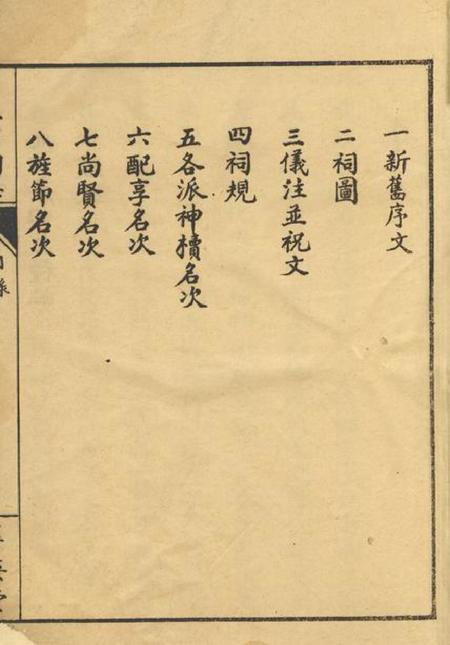 一新舊序文
二祠圖
三儀注並祝文
四祠規
五各派神杝名次
六配享名次
七尚賢名次
八旌節名次